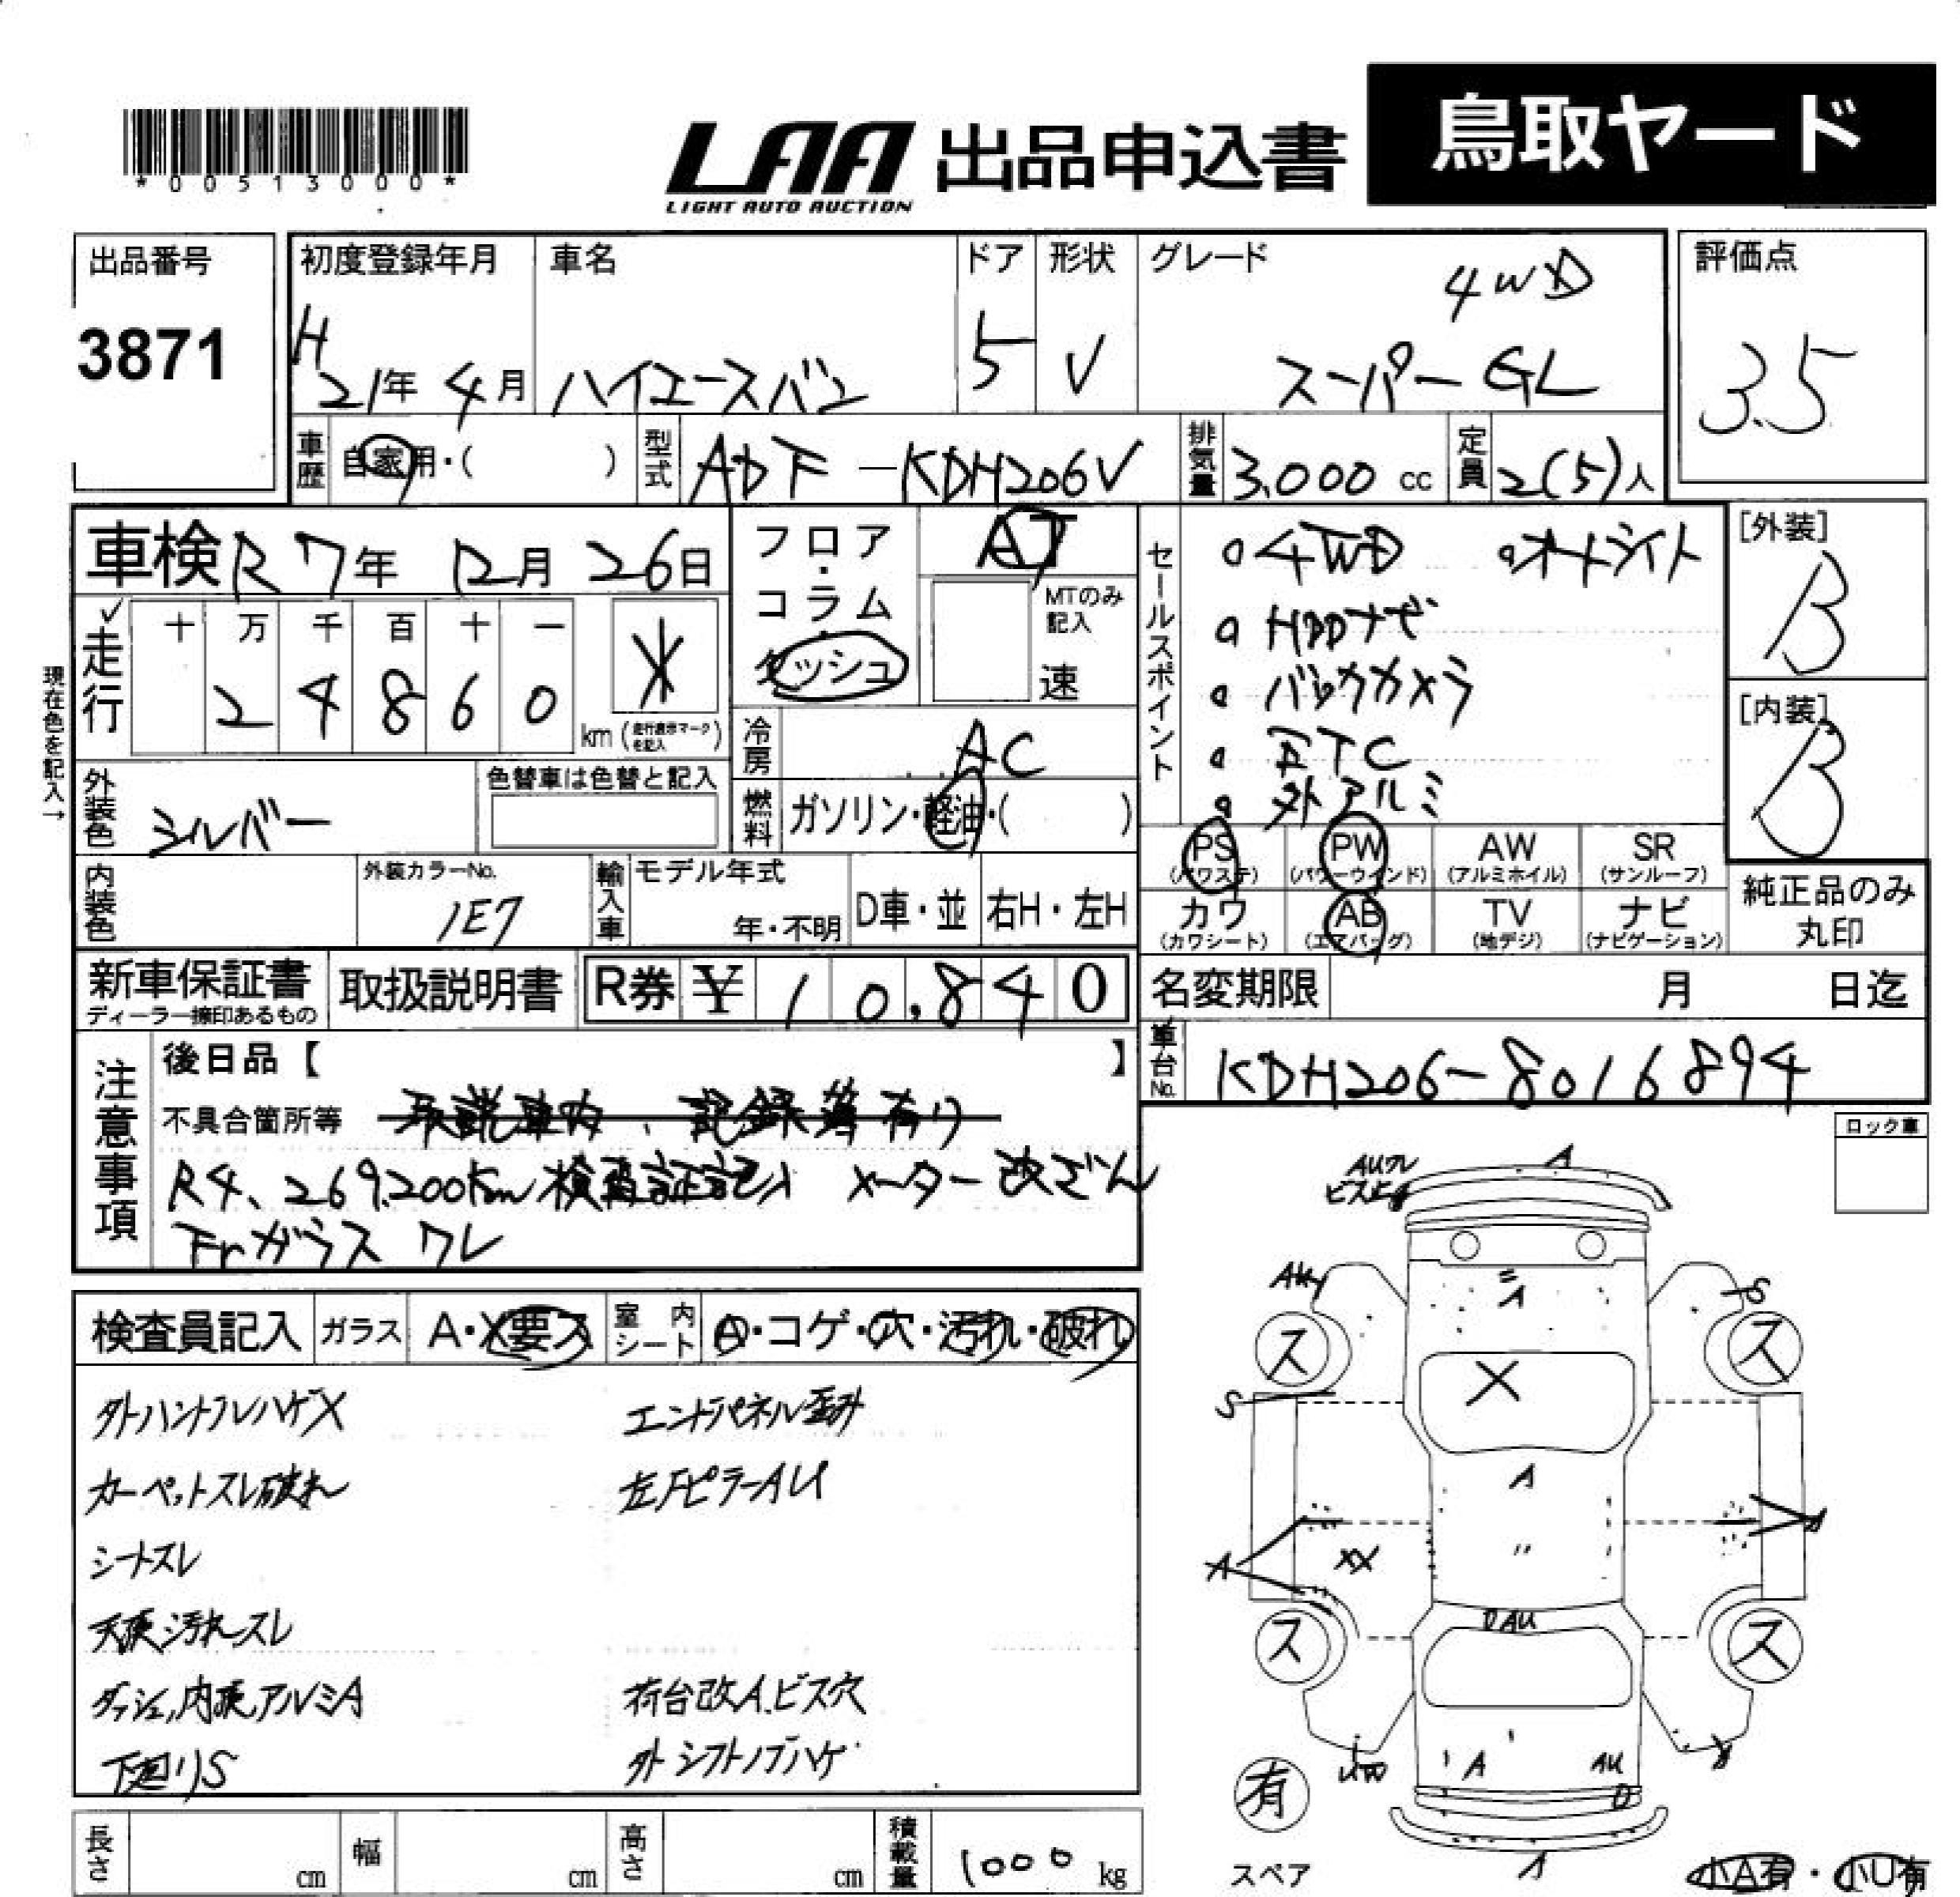 *00513000*
LAA 出品申込書 鳥取ヤード
LIGHT AUTO AUCTION
出品番号 初度登録年月 車名 ドア 形状 グレード 4WD 評価点
3871 H 21年 4月 ハイエースバン 5 V スーパーGL 3.5
車歴 自家用・( ) 型式 ADF-KDH206V 排気量 3,000 cc 定員 2(5)人
車検 R7年 12月 26日 フロア・コラム・ダッシュ AT
MTのみ記入 速
セールスポイント
・4WD ・オートライト
・HDDナビ
・バックカメラ
・ETC
・外アルミ
[外装] B
[内装] B
現在色を記入→
走行 十 万 千 百 十 一
2 4 8 6 0 km (走行表示マークを記入) *
冷房 AC
外装色 シルバー 色替車は色替と記入
燃料 ガソリン・軽油・( )
PS (パワステ) PW (パワーウインド) AW (アルミホイル) SR (サンルーフ)
カワ (カワシート) AB (エアバッグ) TV (地デジ) ナビ (ナビゲーション)
純正品のみ丸印
内装色 外装カラーNo. 1E7 輸入車 モデル年式 年・不明 D車・並 右H・左H
新車保証書 ディーラー捺印あるもの 取扱説明書 R券 ¥10,840 名変期限 月 日迄
車台No. KDH206-8016894
注意事項
後日品【 】
不具合箇所等 取説車内、記録簿有り
R4、269,200Km検査証記入 メーター改ざん
Frガラスワレ
ロック車
検査員記入 ガラス A・X要ス 室内シート A・コゲ・穴・汚れ・破れ
外ハンドルハゲX エンドパネル歪み
カーペットスレ破れ 左Fピラー AU
シートスレ
天張汚れスレ
ダッシュ,内張,アルミA 荷台改A.ビス穴
下廻りS 外シフトノブハゲ
AUワレ
A
A
S
ス
ス
X
S
A
A
XX
A
〃
DAU
ス
ス
A
AU
有
A
スペア
小A有・小U有
長さ cm 幅 cm 高さ cm 積載量 1000 kg